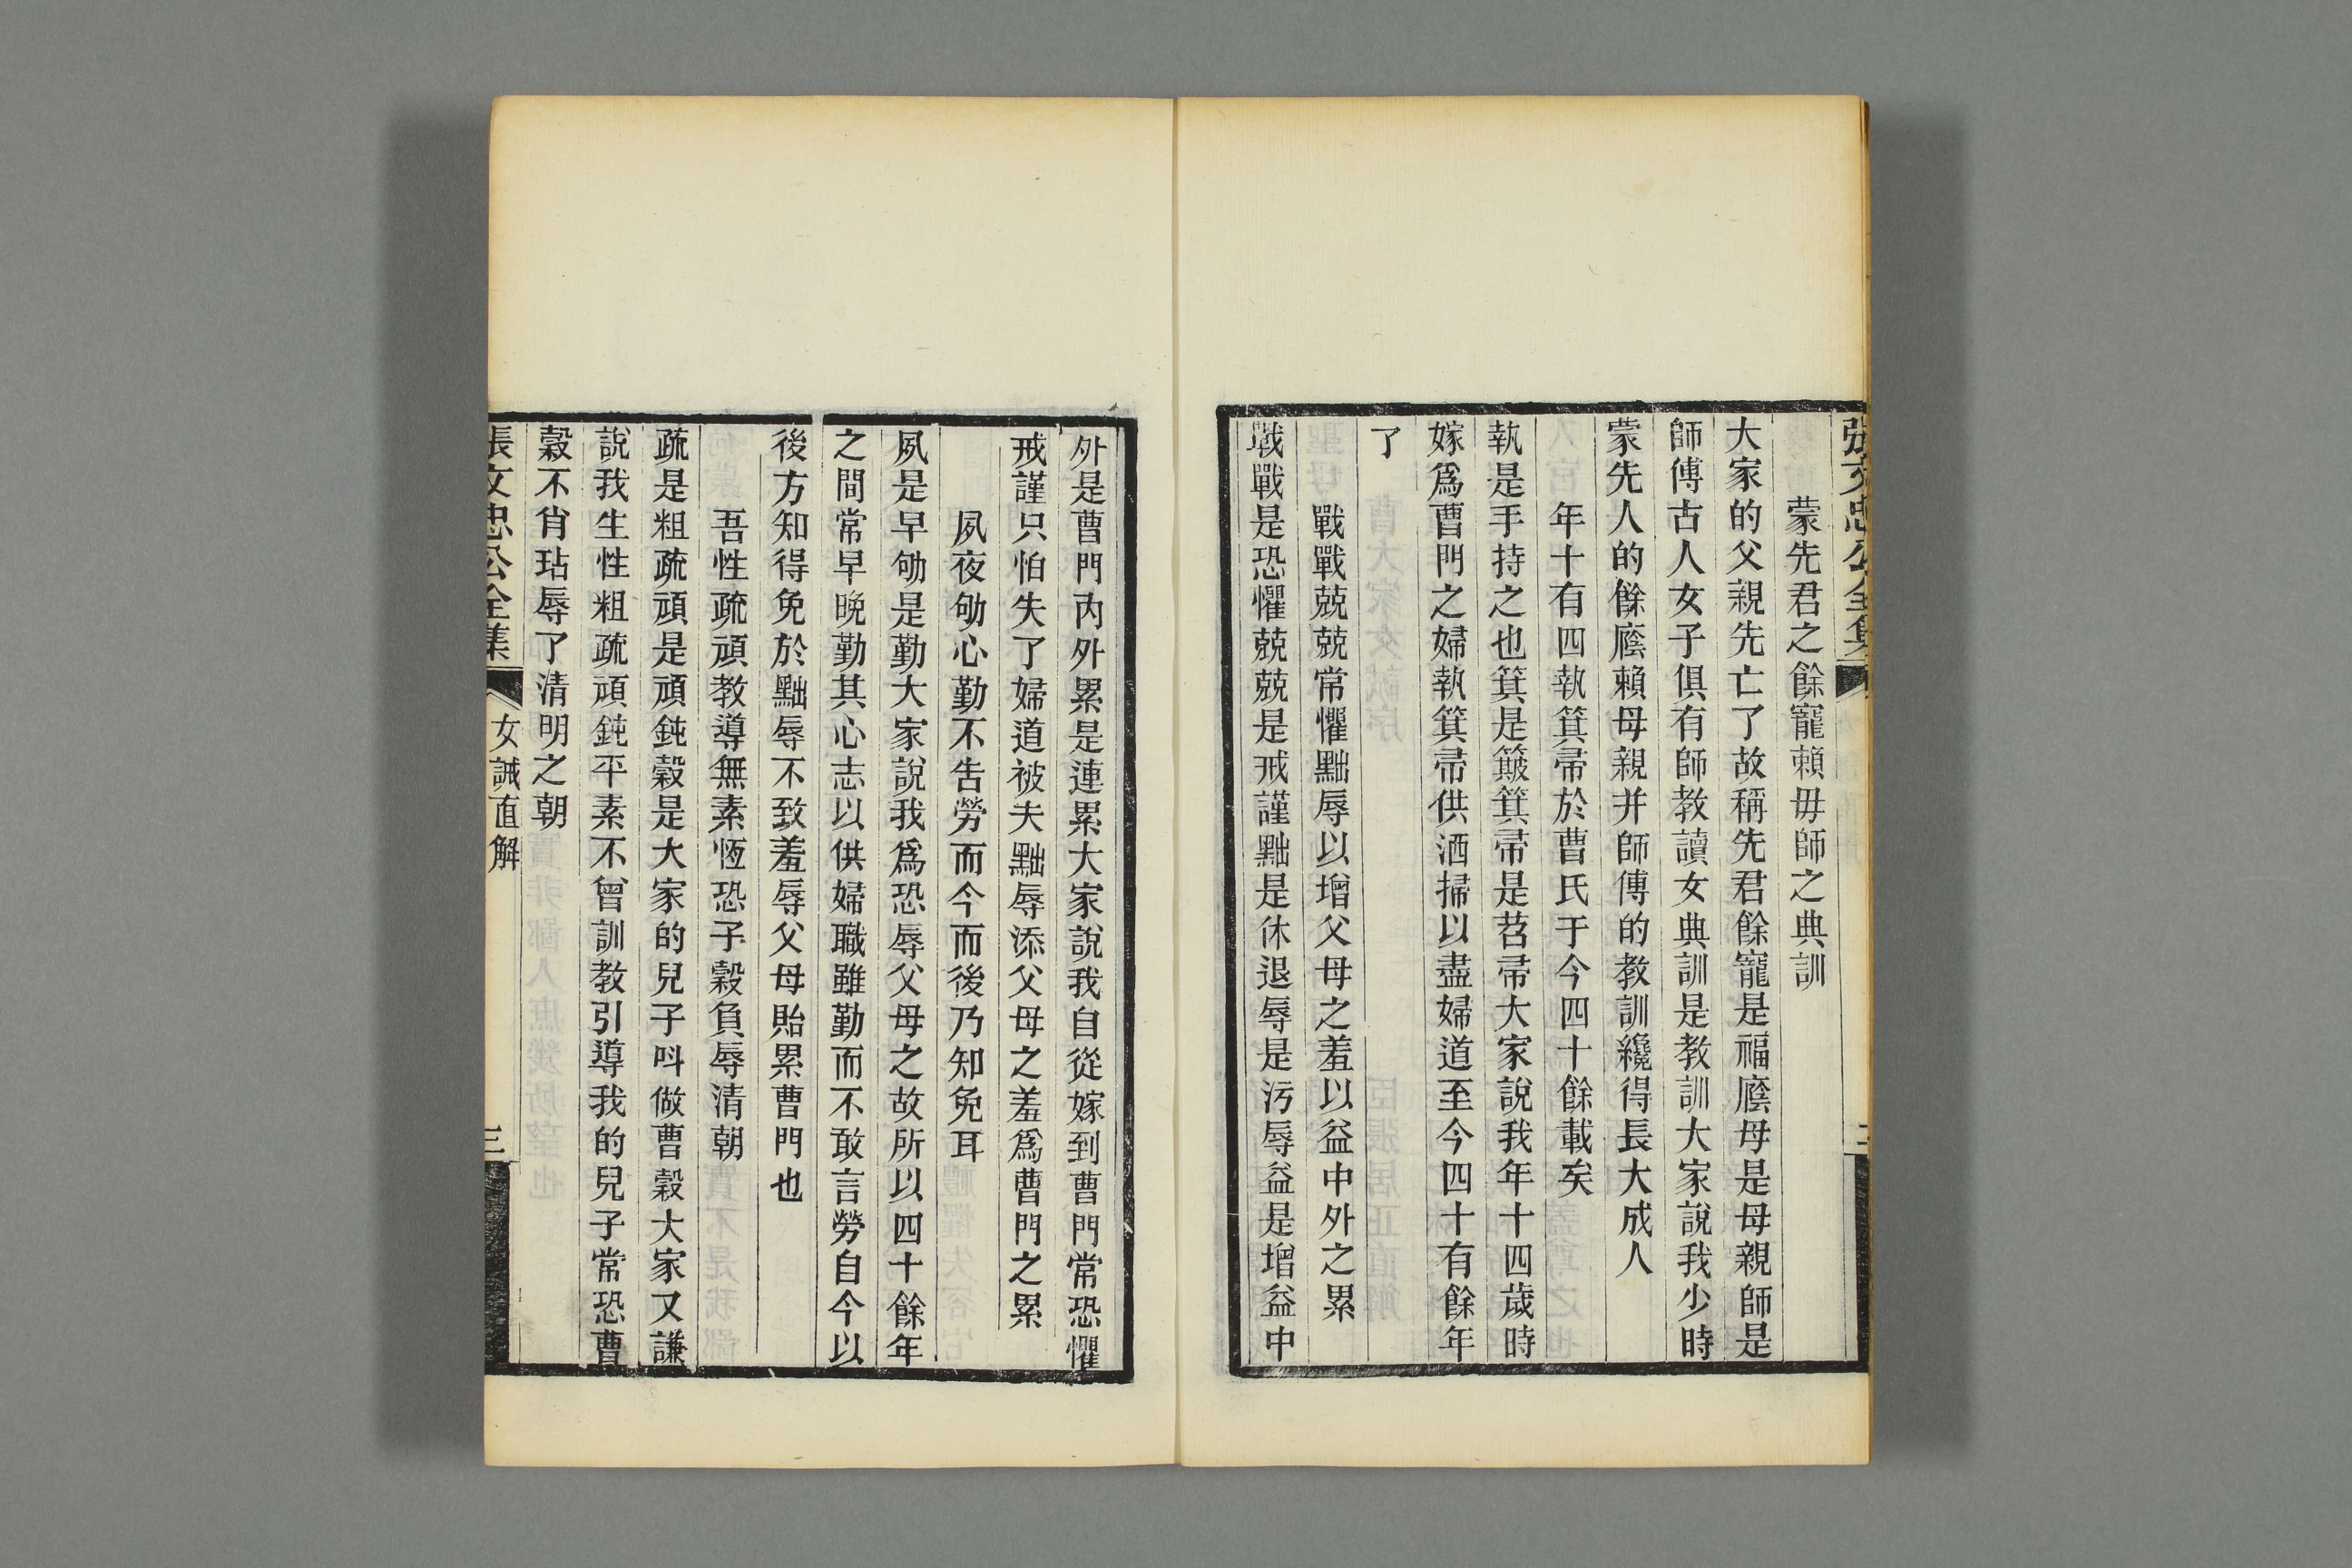 張文忠公全集
蒙先君之餘寵賴毋師之典訓
大家的父親先亡了故稱先君餘寵是福廕母是母親師是
師傅古人女子俱有師教讀女典訓是教訓大家說我少時
蒙先人的餘廕賴母親并師傅的教訓纔得長大成人
年十有四執箕帚於曹氏于今四十餘載矣
執是手持之也箕是簸箕帚是苕帚大家說我年十四歲時
嫁爲曹門之婦執箕帚供洒掃以盡婦道至今四十有餘年
了
戰戰兢兢常懼黜辱以增父母之羞以益中外之累
戰戰是恐懼兢兢是戒謹黜是休退辱是污辱益是增益中
外是曹門內外累是連累大家說我自從嫁到曹門常恐懼
戒謹只怕失了婦道被夫黜辱添父母之羞爲曹門之累
夙夜劬心勤不告勞而今而後乃知免耳
夙是早劬是勤大家說我爲恐辱父母之故所以四十餘年
之間常早晚勤其心志以供婦職雖勤而不敢言勞自今以
後方知得免於黜辱不致羞辱父母貽累曹門也
吾性疏頑教導無素恆恐子穀負辱清朝
疏是粗疏頑是頑鈍穀是大家的兒子呌做曹穀大家又謙
說我生性粗疏頑鈍平素不曾訓教引導我的兒子常恐曹
穀不肖玷辱了清明之朝
張文忠公全集
女誡直解
三